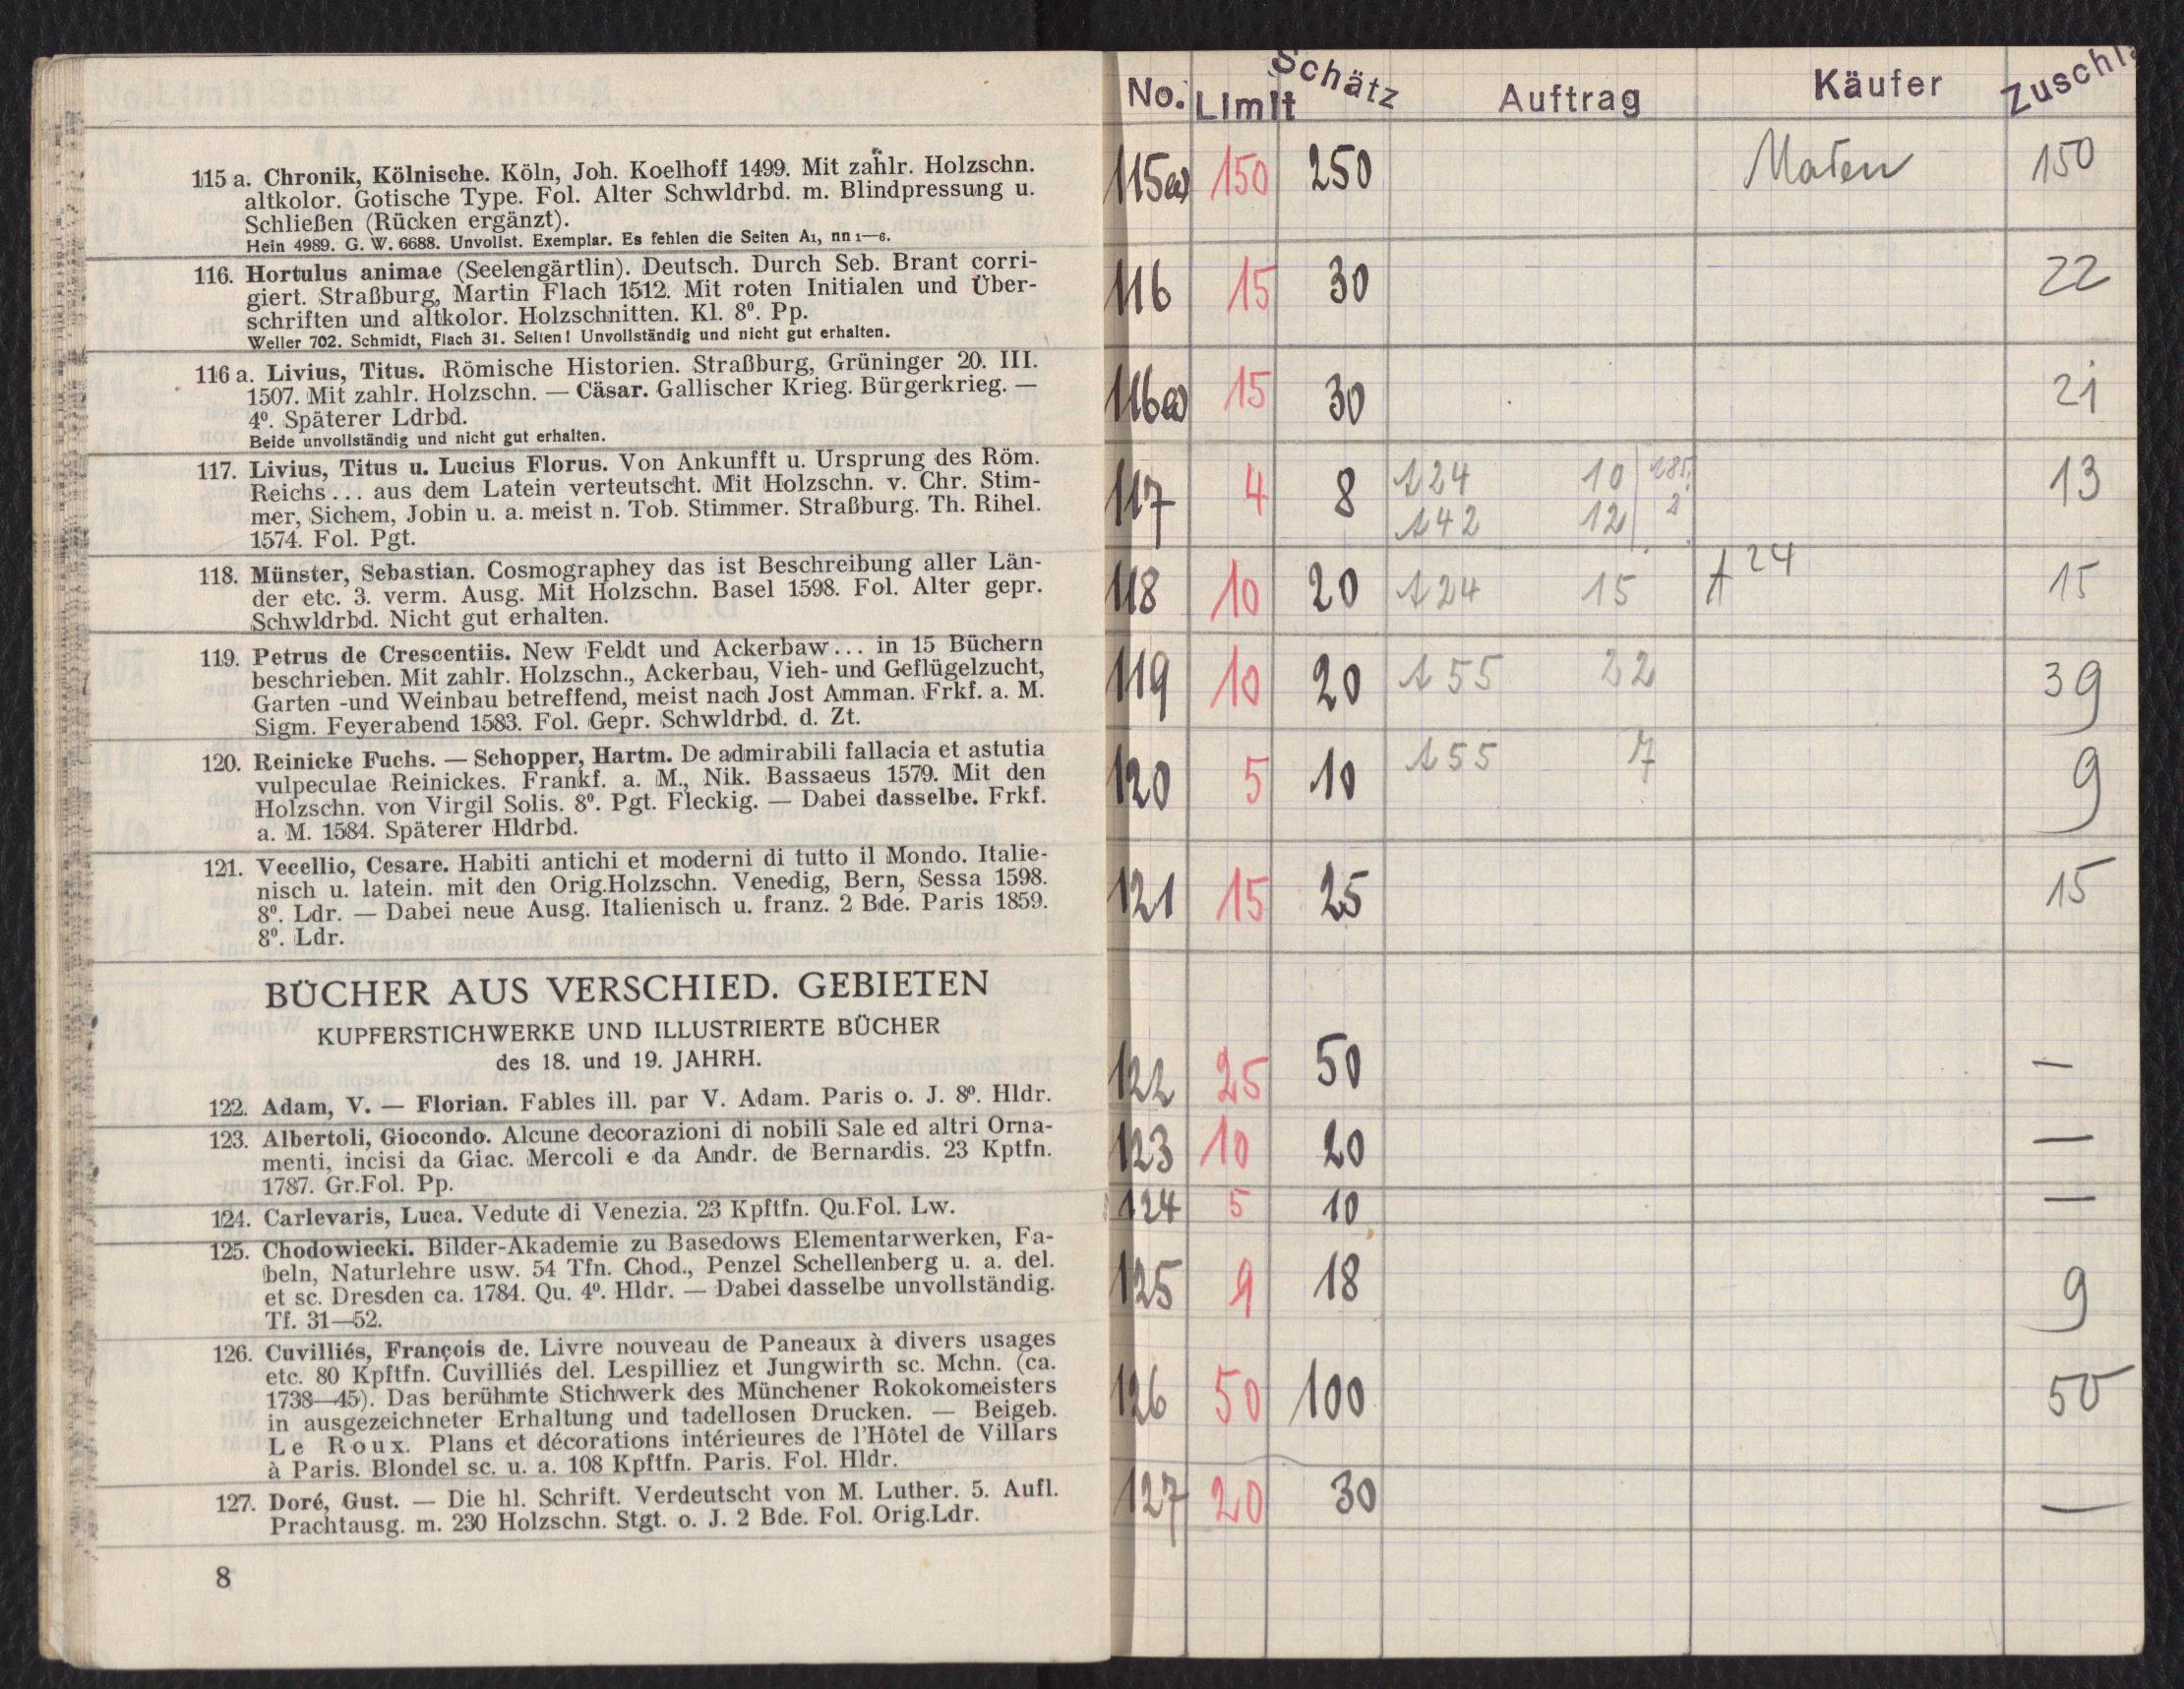 115 a. Chronik, Kölnische. Köln, Joh. Koelhoff 1499. Mit zahlr. Holzschn.
altkolor. Gotische Type. Fol. Alter Schwldrbd. m. Blindpressung u.
Schließen (Rücken ergänzt).
Hein 4989. G. W. 6688. Unvollst. Exemplar. Es fehlen die Seiten A1, nn 1—6.
116. Hortulus animae (Seelengärtlin). Deutsch. Durch Seb. Brant corri-
giert. Straßburg, Martin Flach 1512. Mit roten Initialen und Über-
schriften und altkolor. Holzschnitten. Kl. 8⁰. Pp.
Weller 702. Schmidt, Flach 31. Selten! Unvollständig und nicht gut erhalten.
116 a. Livius, Titus. Römische Historien. Straßburg, Grüninger 20. III.
1507. Mit zahlr. Holzschn. — Cäsar. Gallischer Krieg. Bürgerkrieg. —
4⁰. Späterer Ldrbd.
Beide unvollständig und nicht gut erhalten.
117. Livius, Titus u. Lucius Florus. Von Ankunfft u. Ursprung des Röm.
Reichs ... aus dem Latein verteutscht. Mit Holzschn. v. Chr. Stim-
mer, Sichem, Jobin u. a. meist n. Tob. Stimmer. Straßburg. Th. Rihel.
1574. Fol. Pgt.
118. Münster, Sebastian. Cosmographey das ist Beschreibung aller Län-
der etc. 3. verm. Ausg. Mit Holzschn. Basel 1598. Fol. Alter gepr.
Schwldrbd. Nicht gut erhalten.
119. Petrus de Crescentiis. New Feldt und Ackerbaw ... in 15 Büchern
beschrieben. Mit zahlr. Holzschn., Ackerbau, Vieh- und Geflügelzucht,
Garten -und Weinbau betreffend, meist nach Jost Amman. Frkf. a. M.
Sigm. Feyerabend 1583. Fol. Gepr. Schwldrbd. d. Zt.
120. Reinicke Fuchs. — Schopper, Hartm. De admirabili fallacia et astutia
vulpeculae Reinickes. Frankf. a. M., Nik. Bassaeus 1579. Mit den
Holzschn. von Virgil Solis. 8⁰. Pgt. Fleckig. — Dabei dasselbe. Frkf.
a. M. 1584. Späterer Hldrbd.
121. Vecellio, Cesare. Habiti antichi et moderni di tutto il Mondo. Italie-
nisch u. latein. mit den Orig.Holzschn. Venedig, Bern, Sessa 1598.
8⁰. Ldr. — Dabei neue Ausg. Italienisch u. franz. 2 Bde. Paris 1859.
8⁰. Ldr.
BÜCHER AUS VERSCHIED. GEBIETEN
KUPFERSTICHWERKE UND ILLUSTRIERTE BÜCHER
des 18. und 19. JAHRH.
122. Adam, V. — Florian. Fables ill. par V. Adam. Paris o. J. 8⁰. Hldr.
123. Albertoli, Giocondo. Alcune decorazioni di nobili Sale ed altri Orna-
menti, incisi da Giac. Mercoli e da Andr. de Bernardis. 23 Kptfn.
1787. Gr.Fol. Pp.
124. Carlevaris, Luca. Vedute di Venezia. 23 Kpftfn. Qu.Fol. Lw.
125. Chodowiecki. Bilder-Akademie zu Basedows Elementarwerken, Fa-
beln, Naturlehre usw. 54 Tfn. Chod., Penzel Schellenberg u. a. del.
et sc. Dresden ca. 1784. Qu. 4⁰. Hldr. — Dabei dasselbe unvollständig.
Tf. 31—52.
126. Cuvilliés, François de. Livre nouveau de Paneaux à divers usages
etc. 80 Kpftfn. Cuvilliés del. Lespilliez et Jungwirth sc. Mchn. (ca.
1738—45). Das berühmte Stichwerk des Münchener Rokokomeisters
in ausgezeichneter Erhaltung und tadellosen Drucken. — Beigeb.
Le Roux. Plans et décorations intérieures de l'Hôtel de Villars
à Paris. Blondel sc. u. a. 108 Kpftfn. Paris. Fol. Hldr.
127. Doré, Gust. — Die hl. Schrift. Verdeutscht von M. Luther. 5. Aufl.
Prachtausg. m. 230 Holzschn. Stgt. o. J. 2 Bde. Fol. Orig.Ldr.
8
No. Limit Schätz Auftrag Käufer Zuschl.
115a) 150 250 150
116 15 30 22
116a) 15 30 21
117 4 8 124 10 13
142 12
118 10 20 124 15 24 15
119 10 20 155 22 39
120 5 10 155 7 9
121 15 25 15
122 25 50 —
123 10 20 —
124 5 10 —
125 9 18 9
126 50 100 50
127 20 30 —